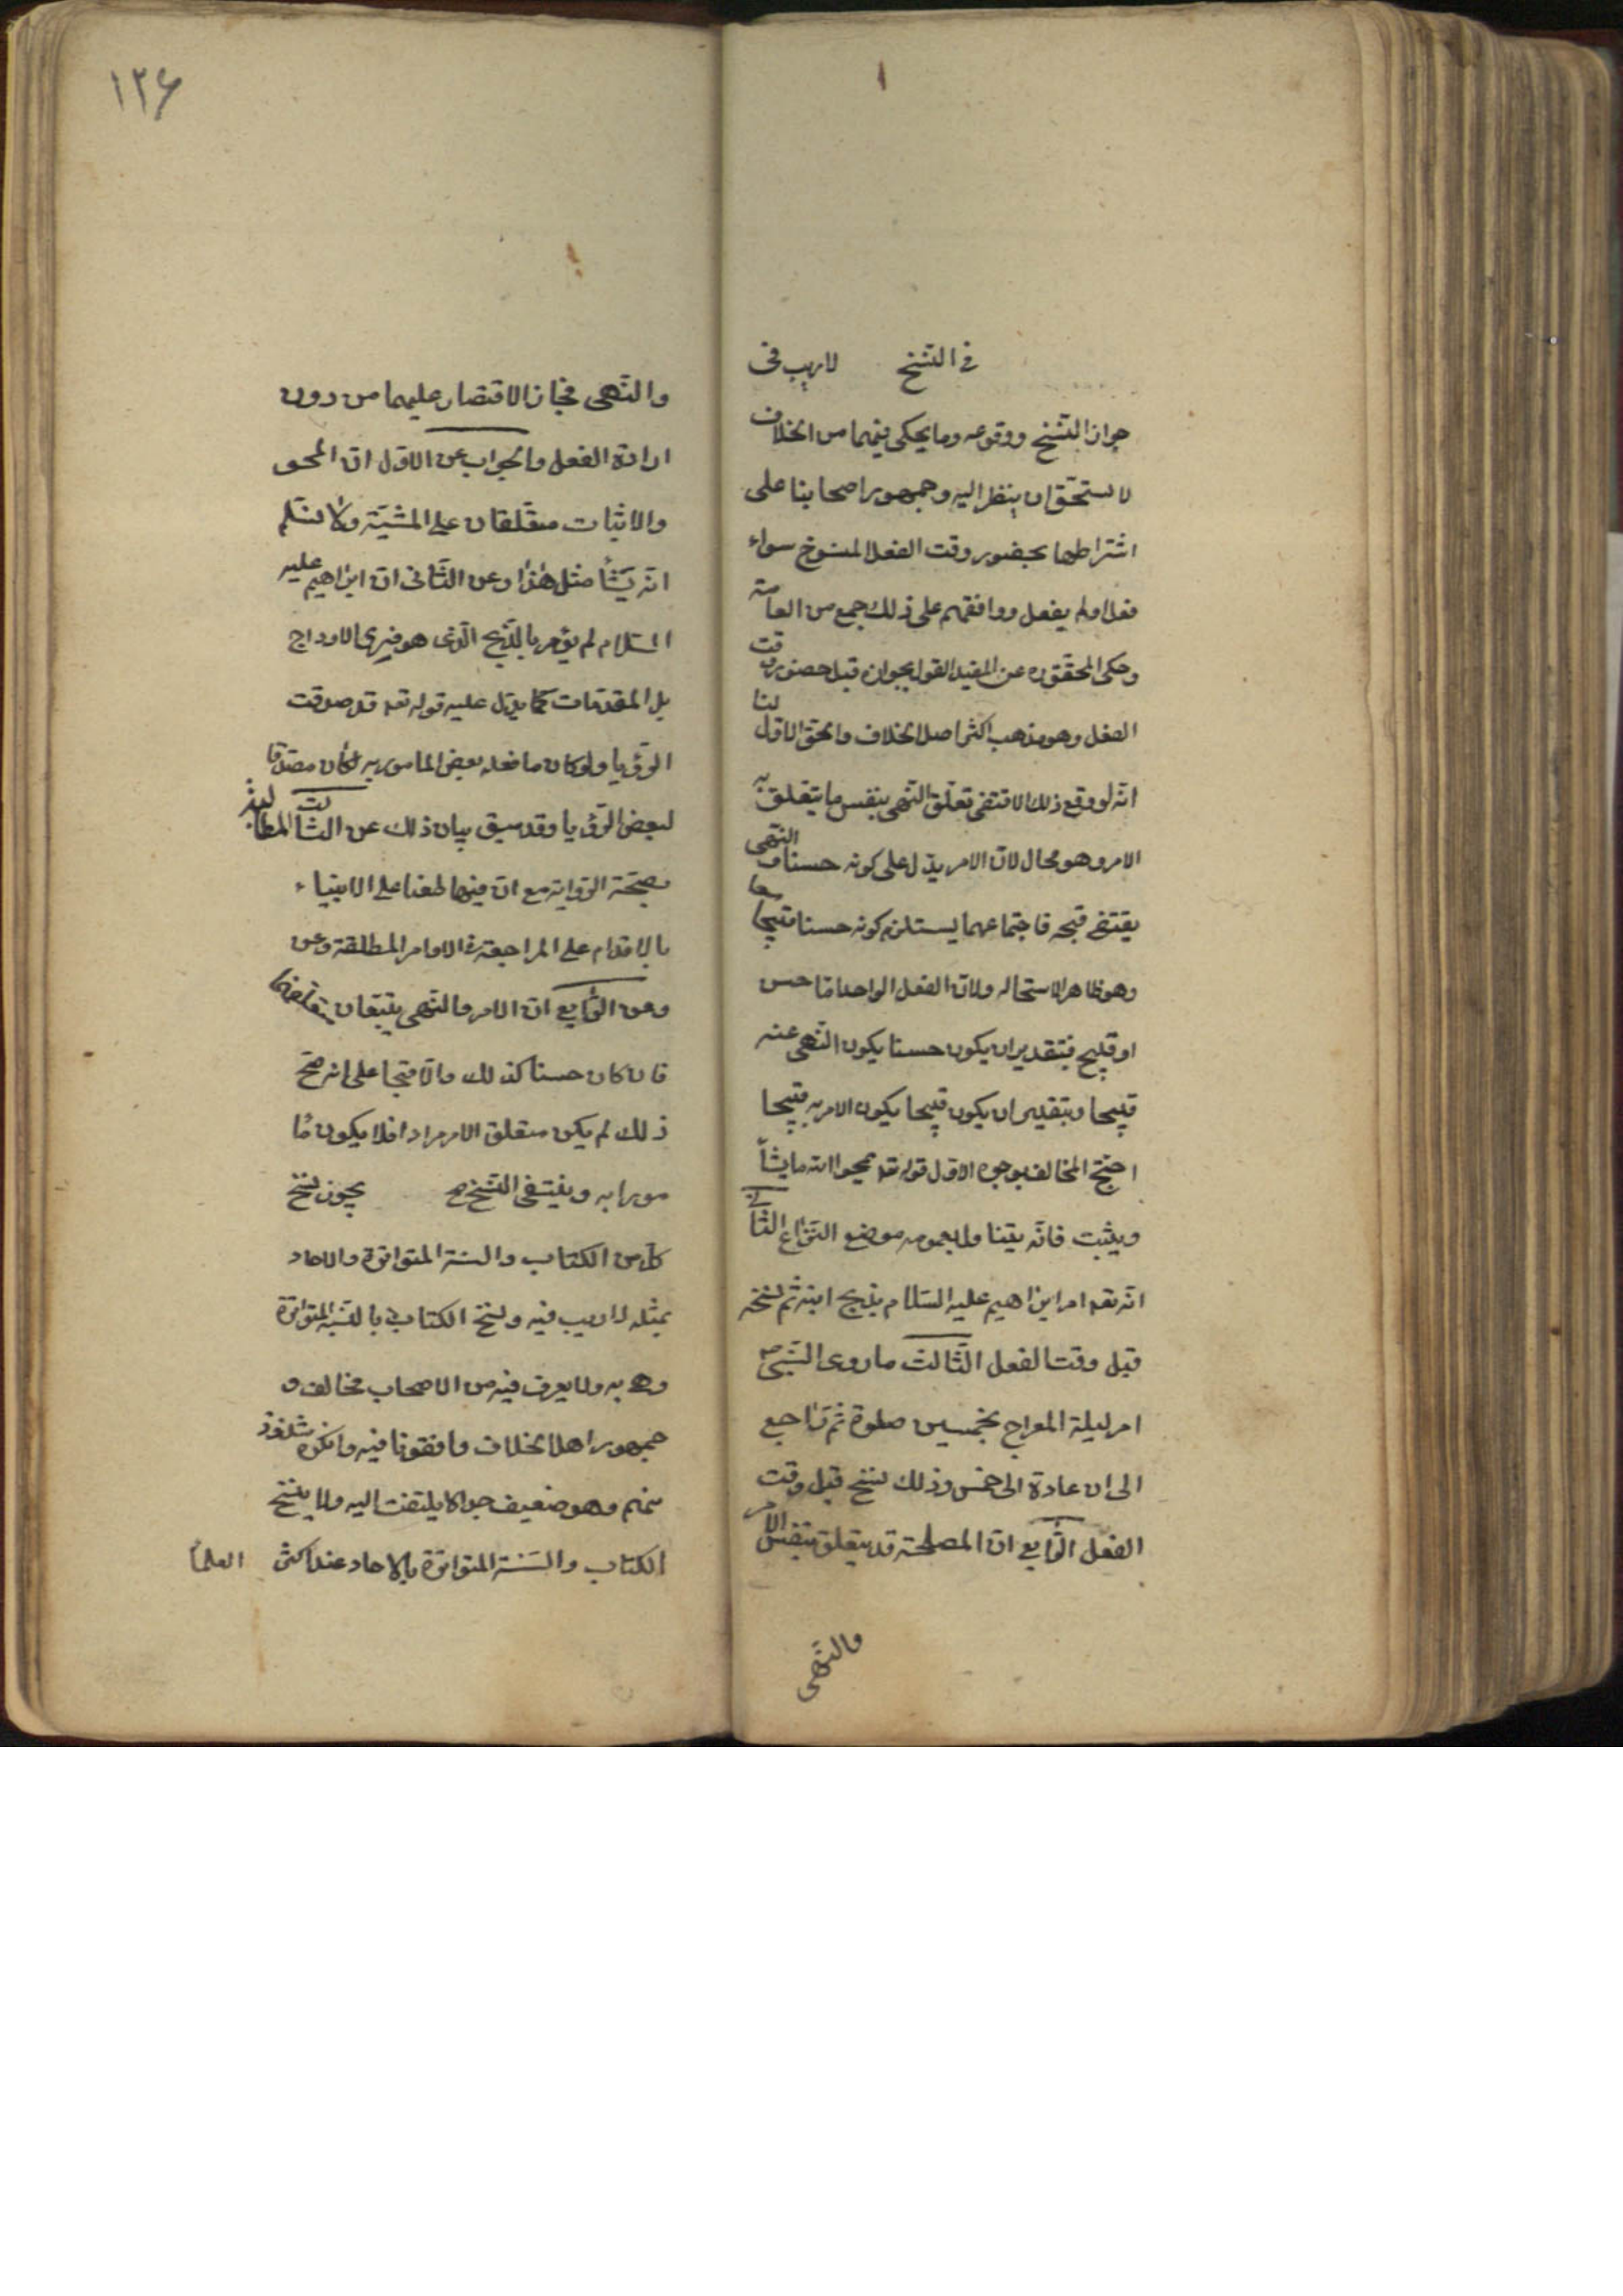 في النسخ لا ريب في
جواز النسخ ووقوعه وما يحكى فيهما من الخلاف
لا يستحق ان ينظر اليه وجمهور اصحابنا على
اشتراطهما بحضور وقت الفعل المنسوخ سواء
فعل او لم يفعل ووافقهم على ذلك جمع من العامة
وحكى المحقق ره عن المفيد القول بجوازه قبل حضور وقت
الفعل وهو مذهب اكثر اصل الخلاف والحق الاول لنا
انه لو وقع ذلك لاقتضى تعلق النهى بنفس ما يتعلق به
الامر وهو محال لان الامر يدل على كونه حسنا و النهى
يقتضى قبحه فاجتماعهما يستلزم كونه حسنا قبيحا معا
وهو ظاهر الاستحاله ولان الفعل الواحد اما حسن
او قبيح فبتقدير ان يكون حسنا يكون النهى عنه
قبيحا وبتقدير ان يكون قبيحا يكون الامر به قبيحا
احتج المخالف بوجوه الاول قوله تعه يمحوا الله ما يشأ
ويثبت فانه يتناول بعمومه موضع النزاع الثانى
انه تعه امر ابراهيم عليه السلام بذبح ابنه ثم نسخه
قبل وقت الفعل الثالث ما روى النبى ص
امر ليلة المعراج بخمسين صلوة ثم تراجع
الى ان عادة الى خمس وذلك نسخ قبل وقت
الفعل الرابع ان المصلحة قد يتعلق بنفس الامر
والنهى
١٢۶
والنهى فجاز الاقتصار عليهما من دون
ارادة الفعل والجواب عن الاول ان المحو
والاثبات معلقان على المشية ولا نسلم
انه يشأ مثل هذا وعن الثانى ان ابراهيم عليه
السلام لم يؤمر بالذبح الذى هو فرى الاوداج
بل المقدمات كما يدل عليه قوله تعه قد صدقت
الرؤيا ولو كان ما فعله بعض المامور به لكان مصدقا
لبعض الرؤيا وقد سبق بيان ذلك عن الثالث المطالبة
بصحة الرواية مع ان فيها طعنا على الانبياء
بالاقدام على المراجعة في الاوامر المطلقة وعن
وعن الرابع ان الامر والنهى يتبعان متعلقهما
فان كان حسنا كذلك والا قبيحا على انه صح
ذلك لم يكن متعلق الامر مرادا فلا يكون ما
مورا به وينتفى النسخ ص يجوز نسخ
كل من الكتاب والسنة المتواترة والاحاد
بمثله لا ريب فيه ونسخ الكتاب بالسنة المتواترة
وهى به ولا يعرف فيه من الاصحاب مخالف و
جمهور اهل الخلاف وافقونا فيه وانكره شذوذ
منهم وهو ضعيف جدا لا يلتفت اليه ولا ينسخ
الكتاب والسنة المتواترة بالاحاد عند اكثر العلمأ